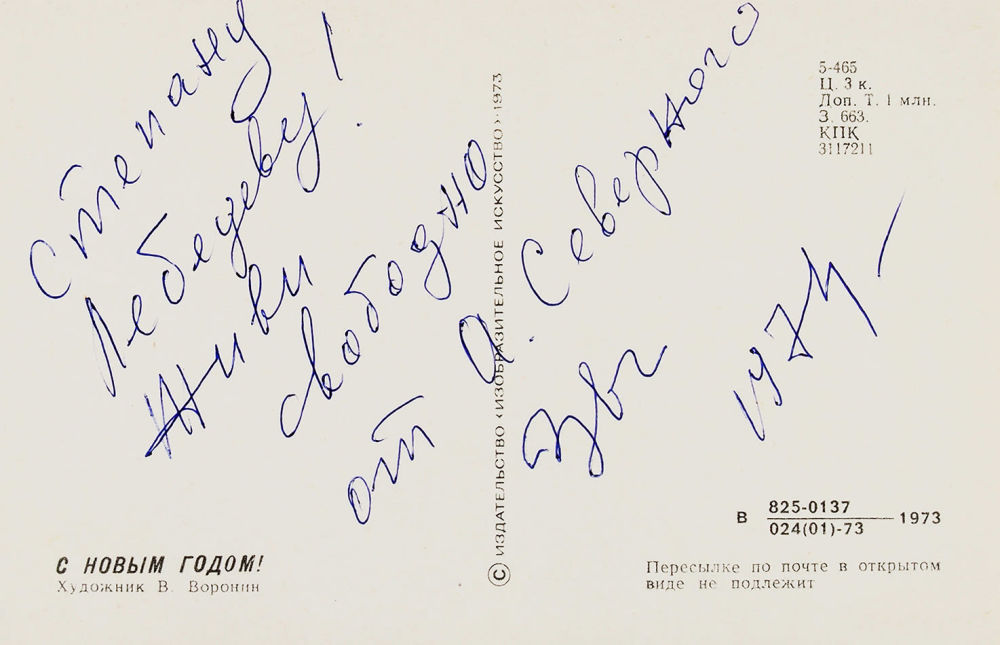 Степану
Лебедеву!
Живи
свободно
от А. Северного
1974
© ИЗДАТЕЛЬСТВО «ИЗОБРАЗИТЕЛЬНОЕ ИСКУССТВО» 1973
5-465
Ц. 3 к.
Доп. Т. 1 млн.
З. 663.
КПК
3117211
В 825-0137
024(01)-73 1973
С НОВЫМ ГОДОМ!
Художник В. Воронин
Пересылке по почте в открытом
виде не подлежит